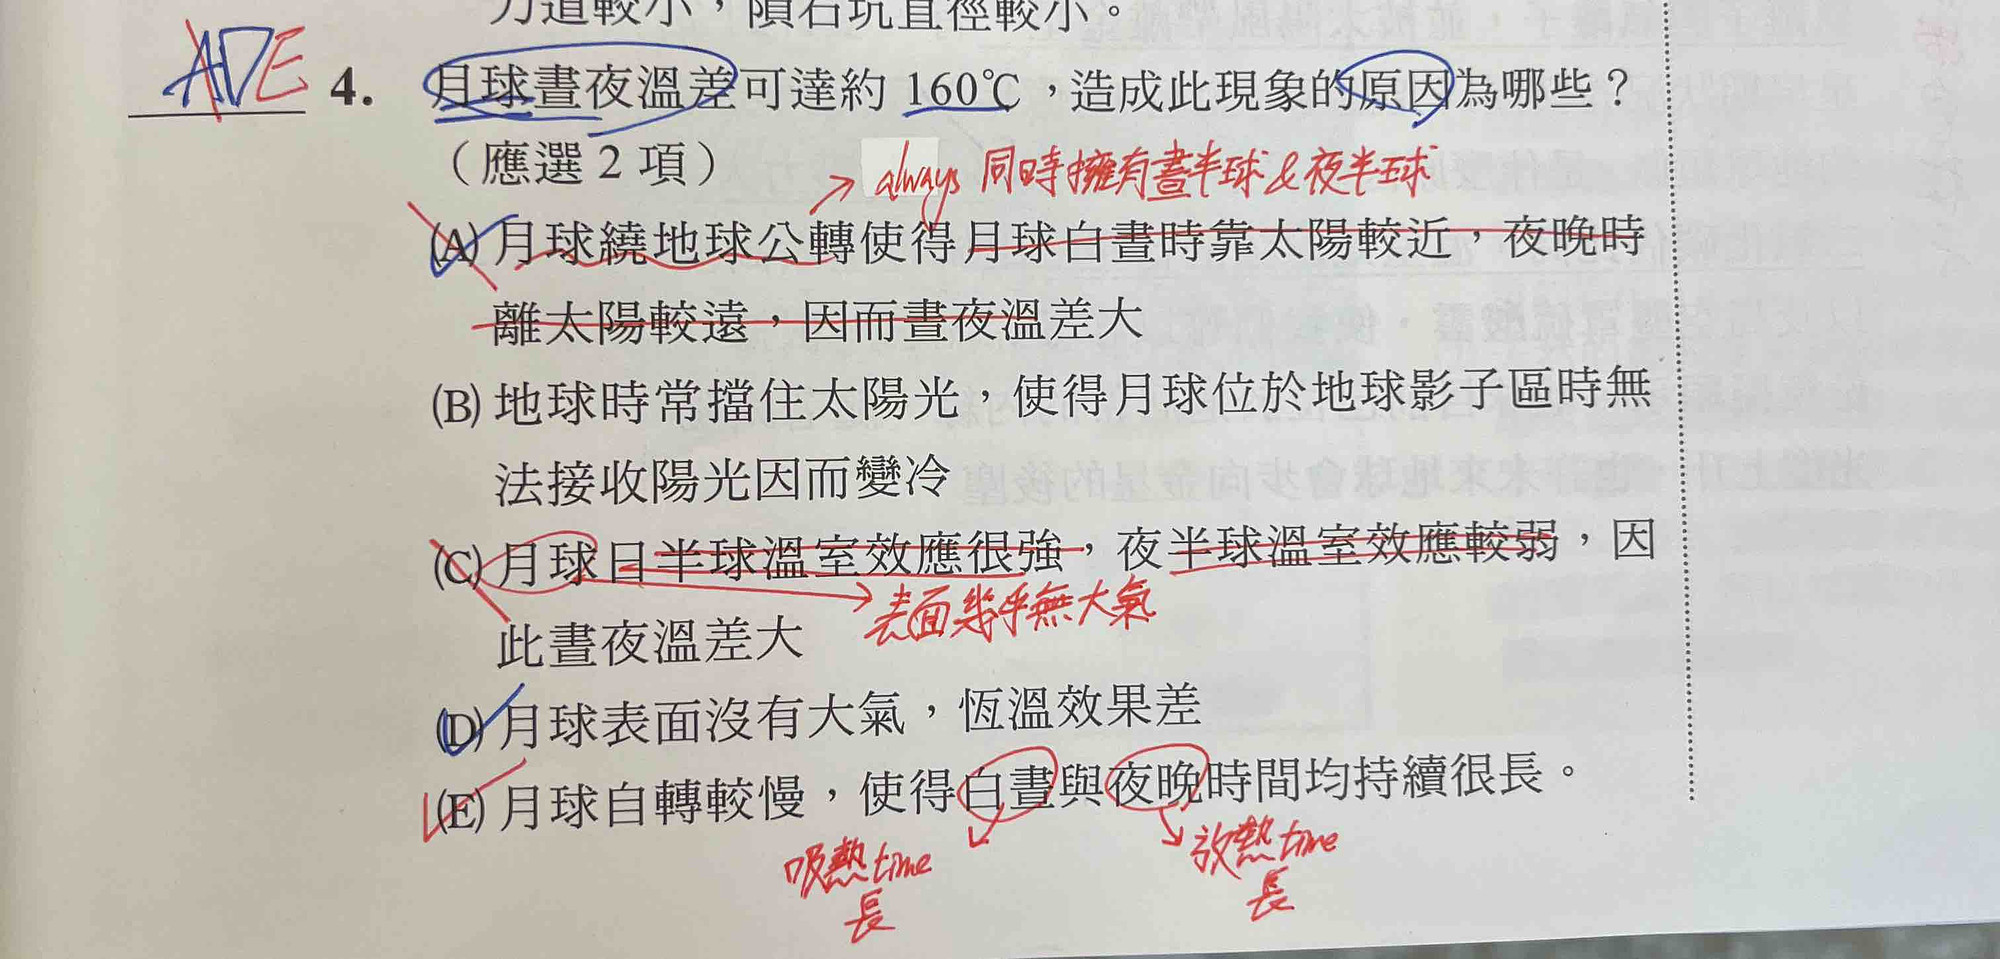 力道較小，隕石坑直徑較小。
ADE
4. 月球晝夜溫差可達約 160℃，造成此現象的原因為哪些？
（應選 2 項）
always 同時擁有晝半球 & 夜半球
(A) 月球繞地球公轉使得月球白晝時靠太陽較近，夜晚時
離太陽較遠，因而晝夜溫差大
(B) 地球時常擋住太陽光，使得月球位於地球影子區時無
法接收陽光因而變冷
(C) 月球日半球溫室效應很強，夜半球溫室效應較弱，因
此晝夜溫差大
表面幾乎無大氣
(D) 月球表面沒有大氣，恆溫效果差
(E) 月球自轉較慢，使得白晝與夜晚時間均持續很長。
吸熱 time
長
放熱 time
長